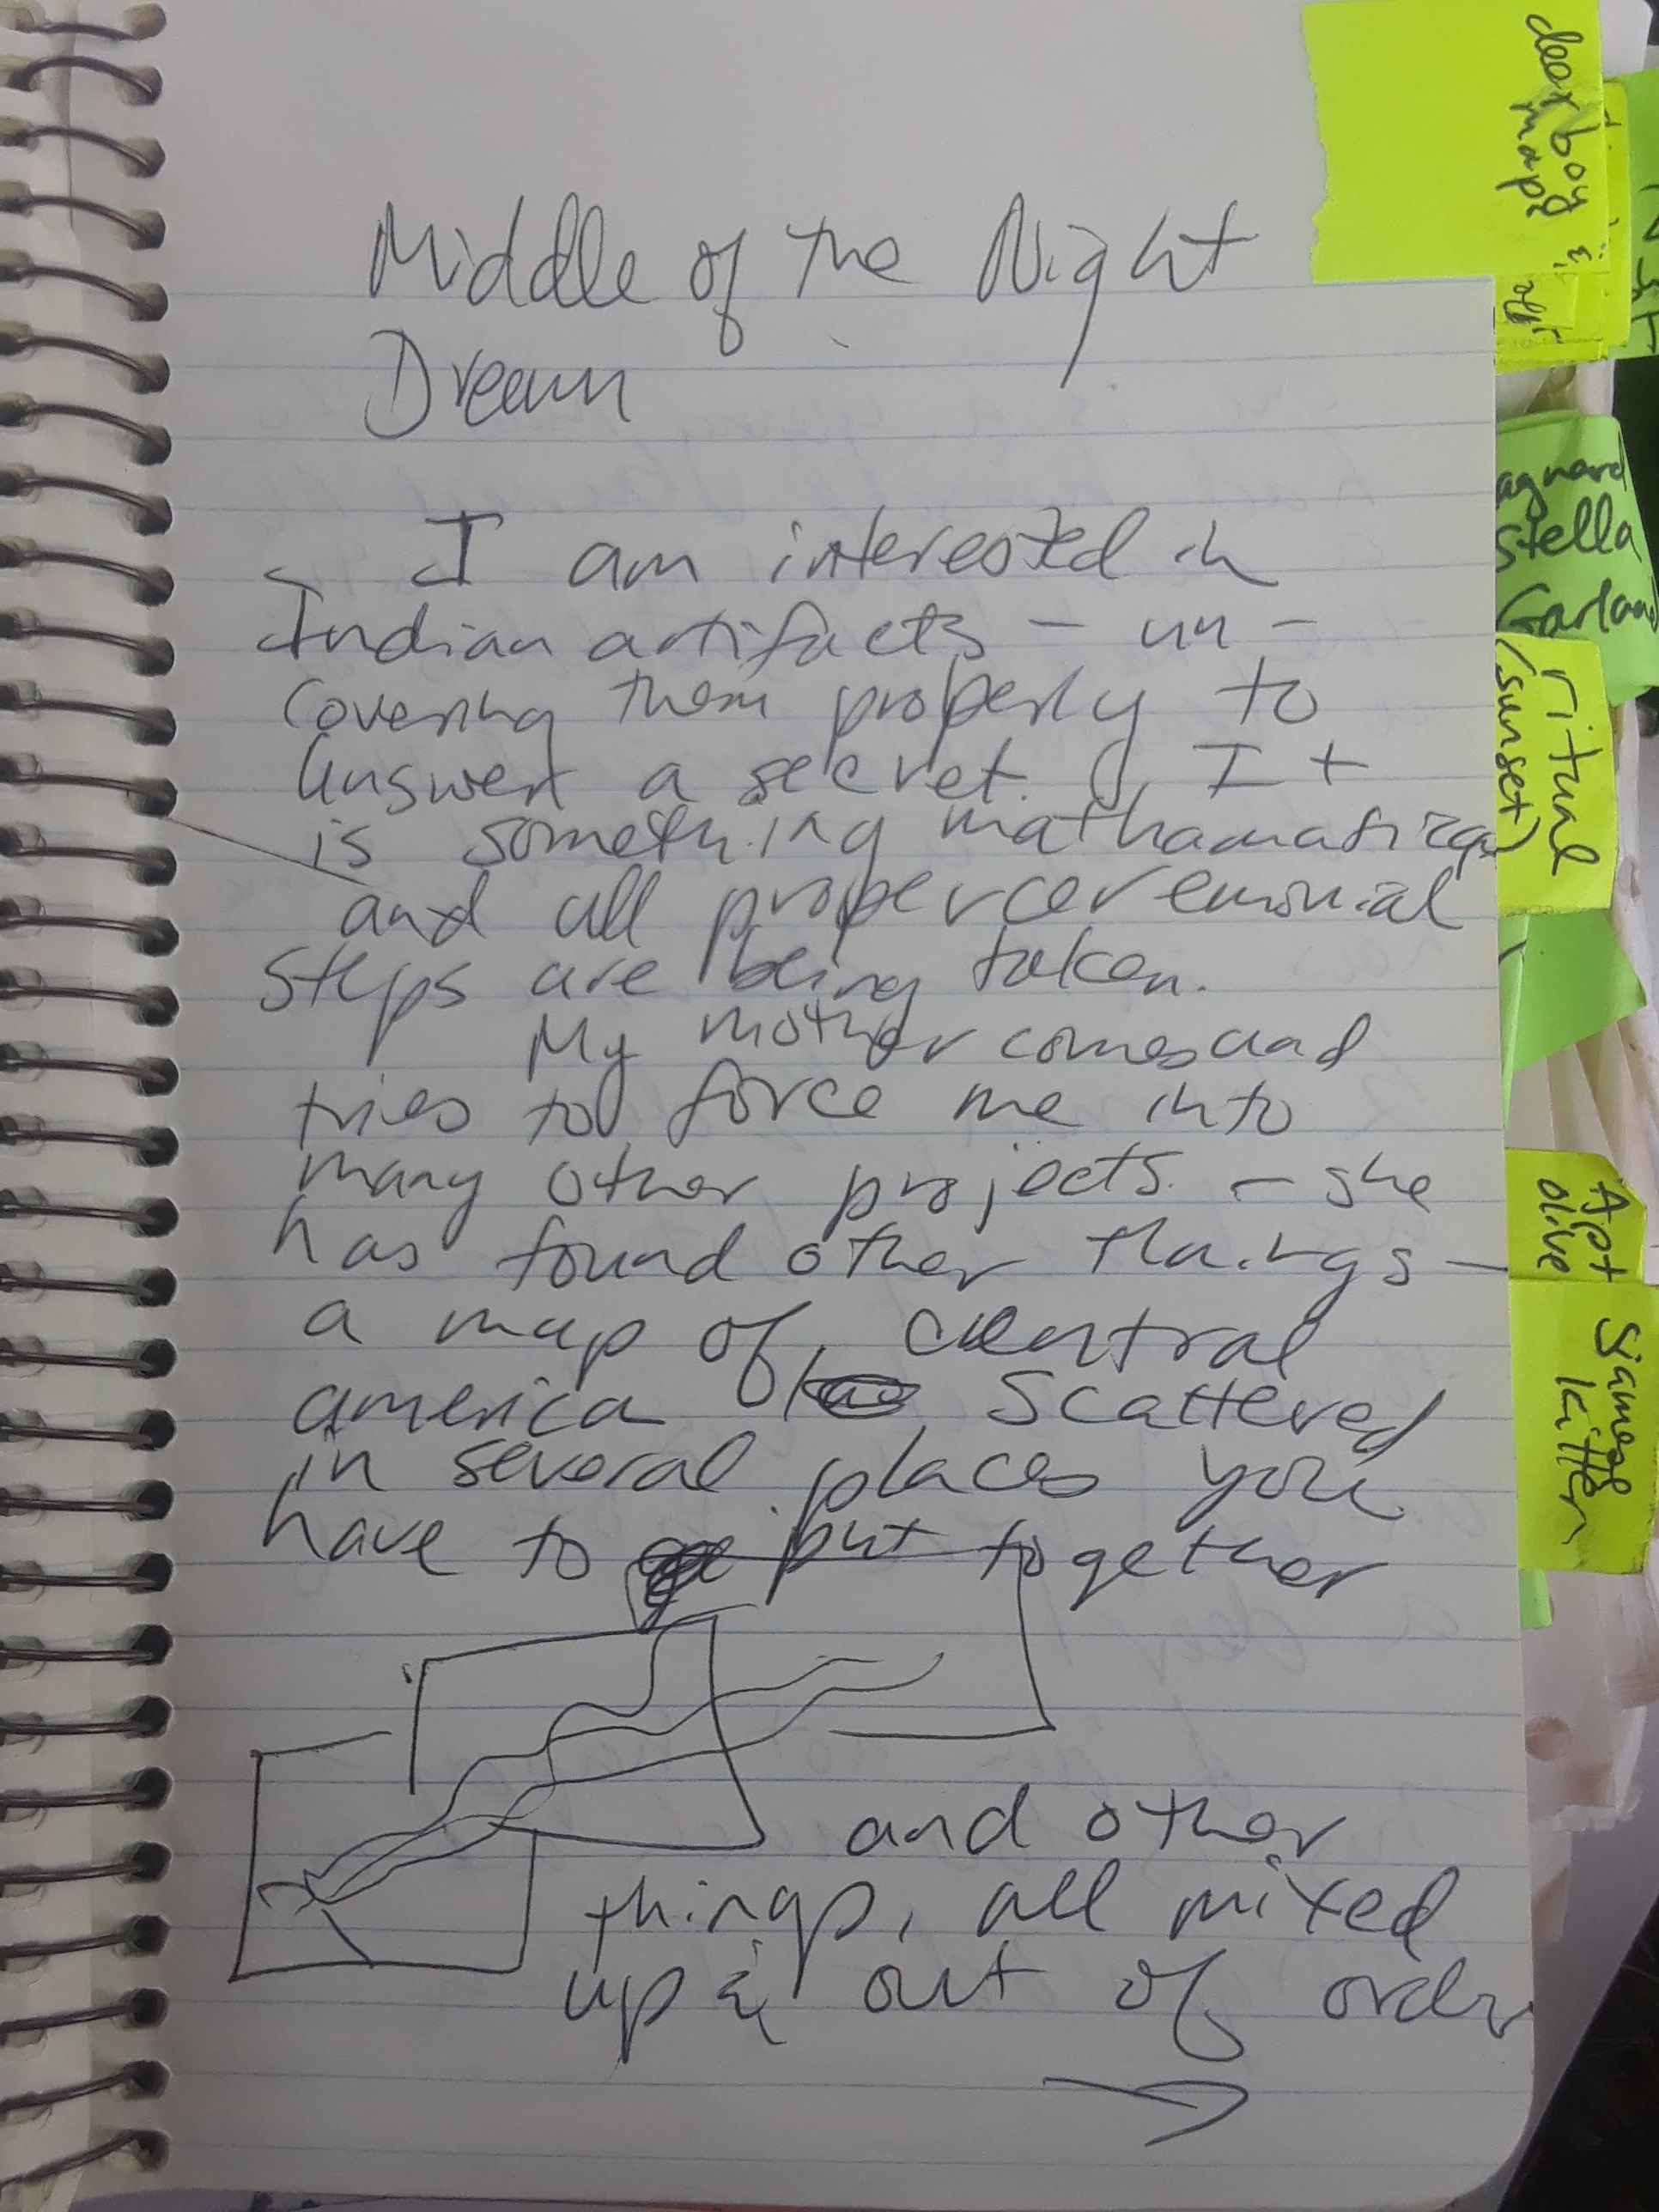 Middle of the Night
Dream
I am interested in
Indian artifacts - un-
covering them properly to
answer a secret. It
is something mathamatical
and all proper ceremonial
steps are being taken.
My mother comes and
tries to force me into
many other projects. - she
has found other things -
a map of central
america scattered
in several places you
have to put together
and other
things, all mixed
up & out of order
deer boy &
map
stella
Garland
ritual
(sunset)
Apt
olive
Siamese
kitten